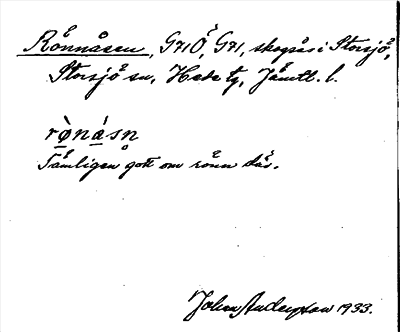 Rönnåsen, G71Ö, G71, skogsås i Storsjö,
Storsjö sn, Hede tg, Jämtl. l.
rø̀nå̀sn̥
Tämligen gott om rönn där.
John Anderson 1933.